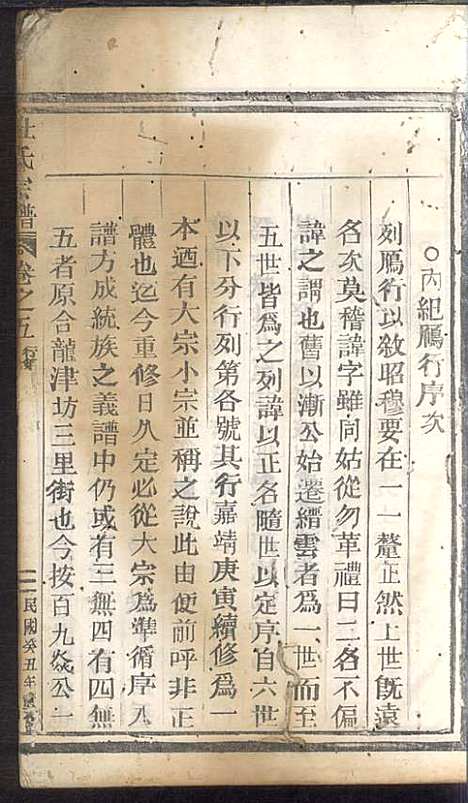 ○內紀鴈行序次
列鴈行以敘昭穆要在一一釐正然上世旣遠
名次莫稽諱字雖同姑從勿革禮曰二名不偏
諱之謂也舊以漸公始遷縉雲者爲一世而至
五世皆爲之列諱以正名隨世以定序自六世
以下分行列第各號其行嘉靖庚寅續修爲一
本迺有大宗小宗並稱之說此由便前呼非正
體也迄今重修日久定必從大宗爲準循序入
譜方成統族之義譜中仍或有三無四有四無
五者原合龍津坊三里街也今按百九焱公一
杜氏宗譜 卷之五 行第
民國癸丑年重修